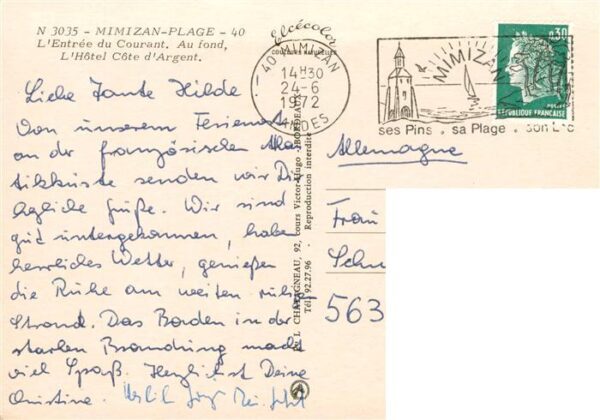 N 3035 - MIMIZAN-PLAGE - 40
L'Entrée du Courant. Au fond,
L'Hôtel Côte d'Argent.
Elcécolor
COULEURS NATURELLES
40 MIMIZAN
14H30
24-6
1972
LANDES
MIMIZAN
ses Pins, sa Plage, son L
0,30
REPUBLIQUE FRANÇAISE
Liebe Tante Hilde!
Von unserem Ferienort
an der französischen Atlan
tikküste senden wir Dir
herzliche Grüße. Wir sind
gut untergekommen, haben
herrliches Wetter, genießen
die Ruhe am weiten
Strand. Das Baden in der
starken Brandung macht
viel Spaß. Herzlichst Deine
Christine.
CHATAGNEAU, 92, cours Victor-Hugo - BORDEAUX
Tél. 92.27.96 - Reproduction interdite
Allemagne
Frau
Schu
563